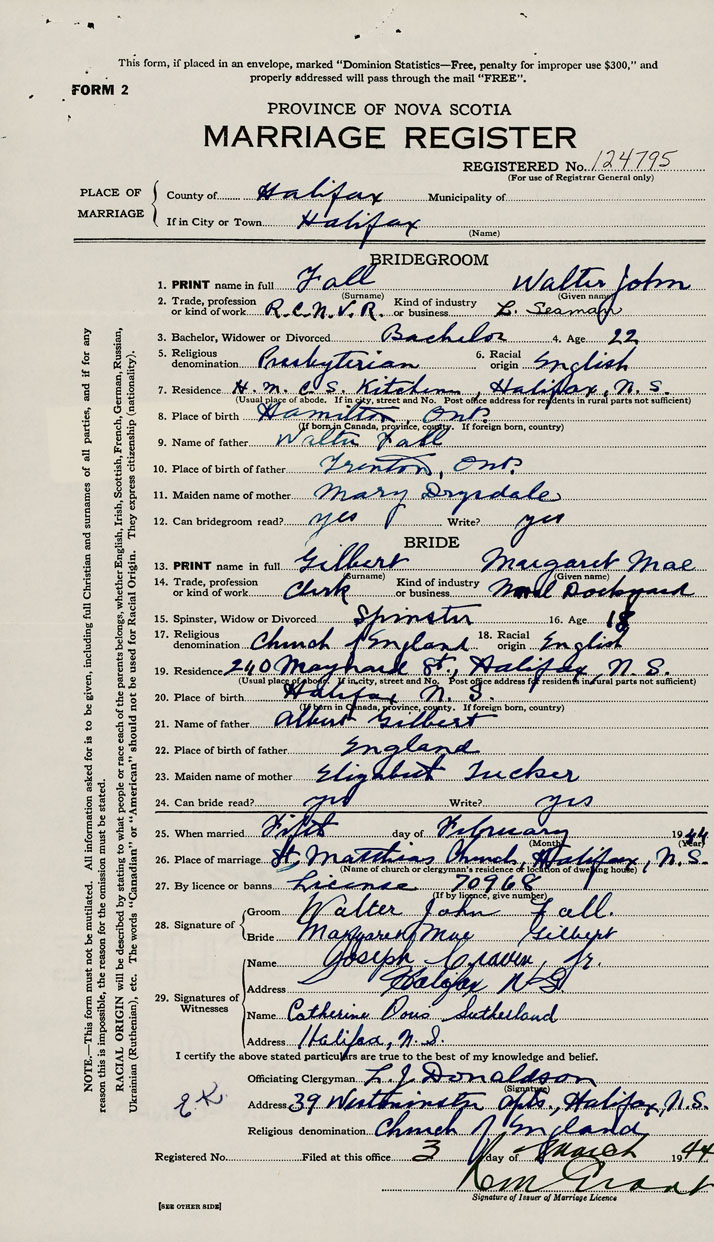 This form, if placed in an envelope, marked "Dominion Statistics—Free, penalty for improper use $300," and
properly addressed will pass through the mail "FREE".
FORM 2
PROVINCE OF NOVA SCOTIA
MARRIAGE REGISTER
REGISTERED No. 124795
(For use of Registrar General only)
PLACE OF MARRIAGE
County of Halifax Municipality of
If in City or Town Halifax
(Name)
BRIDEGROOM
1. PRINT name in full Fall Walter John
(Surname) (Given name)
2. Trade, profession or kind of work R.C.N.V.R. Kind of industry or business L. Seaman
3. Bachelor, Widower or Divorced Bachelor 4. Age 22
5. Religious denomination Presbyterian 6. Racial origin English
7. Residence H.M.C.S. Kitchener, Halifax, N.S.
(Usual place of abode. If in city, street and No. Post office address for residents in rural parts not sufficient)
8. Place of birth Hamilton, Ont.
(If born in Canada, province, county. If foreign born, country)
9. Name of father Walter Fall
10. Place of birth of father Trenton, Ont.
11. Maiden name of mother Mary Drysdale
12. Can bridegroom read? yes Write? yes
BRIDE
13. PRINT name in full Gilbert Margaret Mae
(Surname) (Given name)
14. Trade, profession or kind of work Clerk Kind of industry or business Naval Dockyard
15. Spinster, Widow or Divorced Spinster 16. Age 18
17. Religious denomination Church of England 18. Racial origin English
19. Residence 240 Maynard St., Halifax, N.S.
(Usual place of abode. If in city, street and No. Post office address for residents in rural parts not sufficient)
20. Place of birth Halifax N.S.
(If born in Canada, province, county. If foreign born, country)
21. Name of father Albert Gilbert
22. Place of birth of father England
23. Maiden name of mother Elizabeth Tucker
24. Can bride read? yes Write? yes
25. When married Fifth day of February 1944
(Month) (Year)
26. Place of marriage St. Matthias Church, Halifax, N.S.
(Name of church or clergyman's residence or location of dwelling house)
27. By licence or banns License 70968
(If by licence, give number)
28. Signature of
Groom Walter John Fall.
Bride Margaret Mae Gilbert
29. Signatures of Witnesses
Name Joseph Craven, Jr.
Address Halifax N.S.
Name Catherine Doris Sutherland
Address Halifax, N.S.
I certify the above stated particulars are true to the best of my knowledge and belief.
Officiating Clergyman L. J. Donaldson
(Signature)
E.K.
Address 39 Westminster Apts., Halifax, N.S.
Religious denomination Church of England
Registered No. Filed at this office 3 day of March 1944
Grant
Signature of Issuer of Marriage Licence
[SEE OTHER SIDE]
NOTE.—This form must not be mutilated. All information asked for is to be given, including full Christian and surnames of all parties, and if for any
reason this is impossible, the reason for the omission must be stated.
RACIAL ORIGIN will be described by stating to what people or race each of the parents belongs, whether English, Irish, Scottish, French, German, Russian,
Ukrainian (Ruthenian), etc. The words "Canadian" or "American" should not be used for Racial Origin. They express citizenship (nationality).